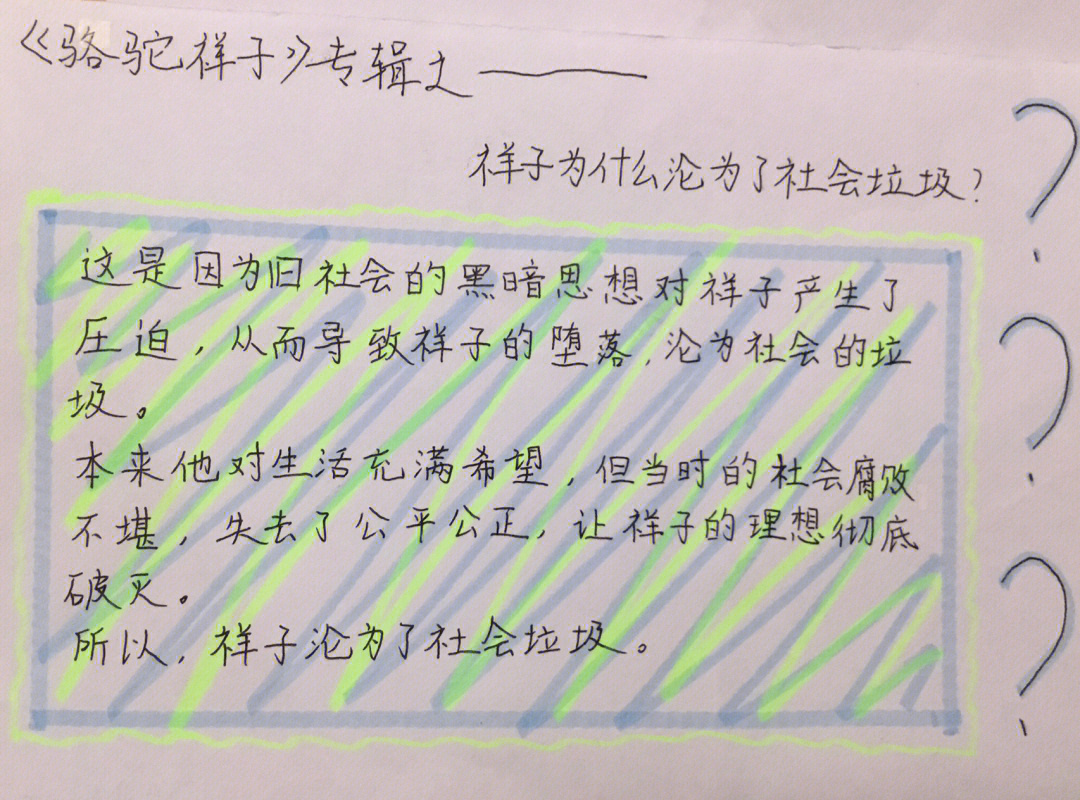 《骆驼祥子》专辑之——
祥子为什么沦为了社会垃圾？
这是因为旧社会的黑暗思想对祥子产生了
压迫，从而导致祥子的堕落，沦为社会的垃
圾。
本来他对生活充满希望，但当时的社会腐败
不堪，失去了公平公正，让祥子的理想彻底
破灭。
所以，祥子沦为了社会垃圾。
？
？
？